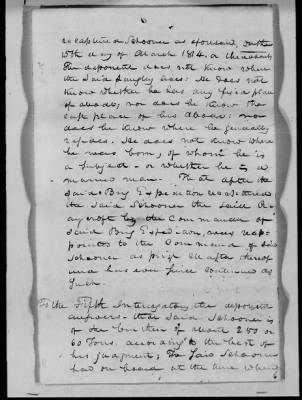 recaptured Schooner as aforesaid, on the
15th day of March 1814. or thereabouts
The deponent does not know where
the Said Langley lives: He does not
know whether he has any fixed place
of abode; nor does he know the
last place of his abode: nor
does he know where he generally
resides. He does not know where
he was born; of whom he is
a Subject: or whether he is a
married man. That after the
Said Brig Expedition recaptured
the Said Schooner the Said
craft by the Commander of
Said Brig Expedition, was reap-
pointed to the Command of Said
Schooner as prize Master thereof
and has ever since continued as
Such.
To the Fifth Interrogatory the deponent
answers - that Said Schooner is
of the burthen of about 250 or
60 Tons. according to the best of
his judgment; The Said Schooner
had on board at the time when